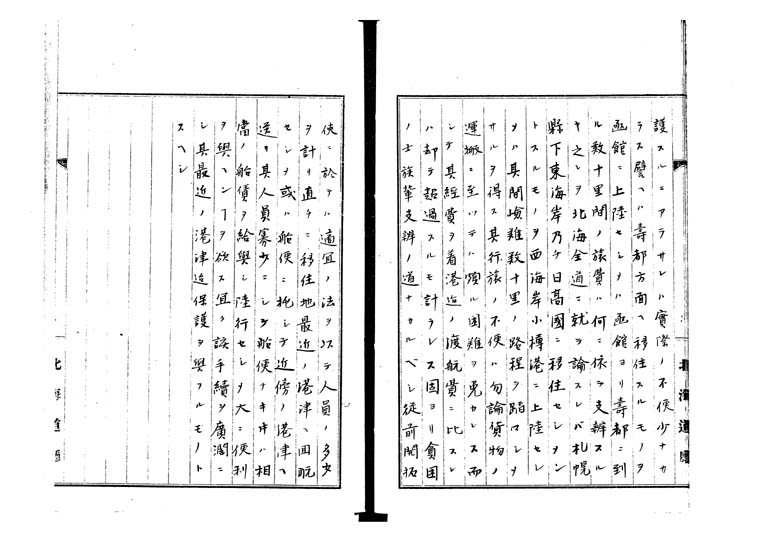 護スルニアラサレハ實際ノ不便少ナカ
ラス譬ヘハ壽都方面ヘ移住スルモノヲ
函館ニ上陸セシメハ函館ヨリ壽都ニ到
ル数十里間ノ旅費ハ何ニ依テ支辨スル
ヤ之レヲ北海全道ニ就テ論スレバ札幌
縣下東海岸乃チ日高國ニ移住セシメン
トスルモノヲ西海岸小樽港ニ上陸セシ
メハ其間嶮難数十里ノ路程ヲ踏マシメ
サルヲ得ス其行旅ノ不便ハ勿論貨物ノ
運搬ニ至ツテハ頗ル困難ヲ免カレス而
シテ其經費ヲ着港迄ノ渡航費ニ比スレ
ハ却テ超過スルモ計ラレス固ヨリ貧困
ノ士族輩支辨ノ道ナカルベシ從前開拓
使ニ於テハ適宜ノ法ヲ以テ人員ノ多少
ヲ計リ直チニ移住地最近ノ港津ヘ回航
セシメ或ハ船便ニ托シテ近傍ノ港津ヘ
送リ其人員寡少ニシテ船便ナキ時ハ相
當ノ船賃ヲ給與シ陸行セシメ大ニ便利
ヲ與ヘンヿヲ欲ス宜ク該手續ヲ廣濶ニ
シ其最近ノ港津迄保護ヲ與フルモノト
スヘシ
北海道廳
北海道廳